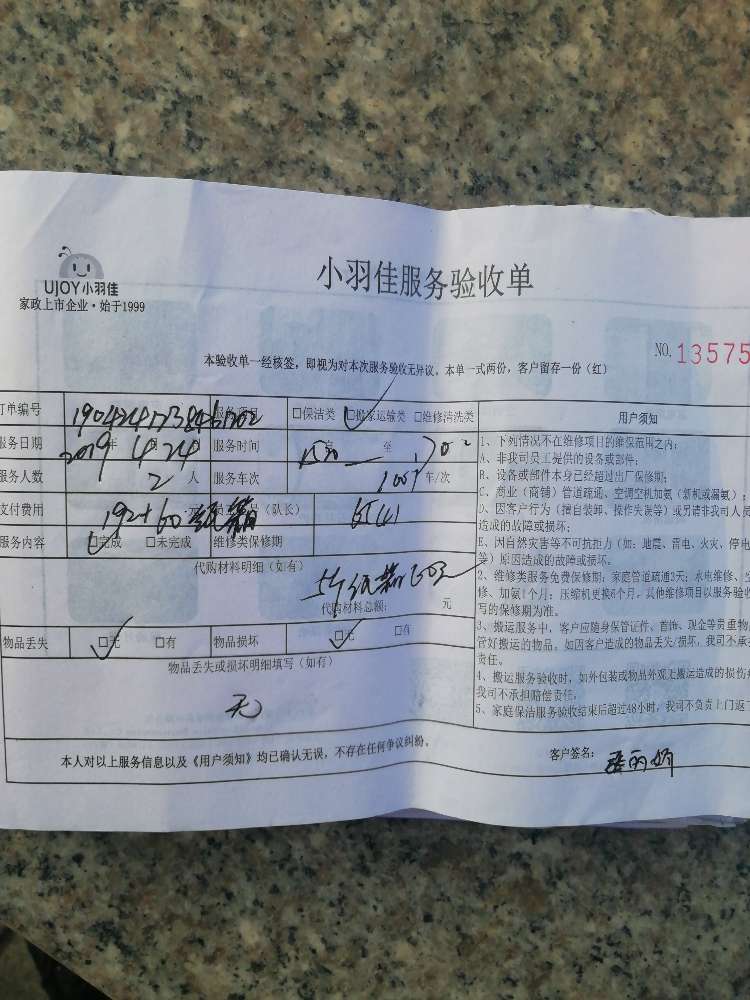 UJOY小羽佳
家政上市企业·始于1999
小羽佳服务验收单
本验收单一经核签，即视为对本次服务验收无异议。本单一式两份，客户留存一份（红）
NO.13575
订单编号 服务项目 □保洁类 □搬家运输类 □维修清洗类
服务日期 2019年 4 24 服务时间 至
服务人数 2 人 服务车次 车/次
支付费用 192+60纸箱 （队长）
服务内容 □完成 □未完成 维修类保修期
代购材料明细（如有）
纸箱
代购材料总额： 元
物品丢失 □无 □有 物品损坏 □无 □有
物品丢失或损坏明细填写（如有）
无
本人对以上服务信息以及《用户须知》均已确认无误，不存在任何争议纠纷。
客户签名：
用户须知
1、下列情况不在维修项目的维保范围之内：
A、非我司员工提供的设备或部件；
B、设备或部件本身已经超过出厂保修期；
C、商业（商铺）管道疏通、空调空机加氨（新机或漏氨）；
D、因客户行为（擅自装卸、操作失误等）或另请非我司人员
造成的故障或损坏；
E、因自然灾害等不可抗拒力（如：地震、雷电、火灾、停电
等）原因造成的故障或损坏。
2、维修类服务免费保修期：家庭管道疏通3天；水电维修、空
修、加氨1个月；压缩机更换6个月，其他维修项目以服务验收
写的保修期为准。
3、搬运服务中，客户应随身保管证件、首饰、现金等贵重物
管好搬运的物品。如因客户造成的物品丢失/损坏，我司不承
责任。
4、搬运服务验收时，如外包装或物品外观无搬运造成的损伤
我司不承担赔偿责任。
5、家庭保洁服务验收结束后超过48小时，我司不负责上门返